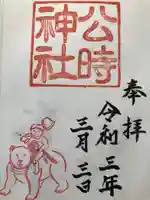 奉拝
公時
神社
令和三年
三月三日